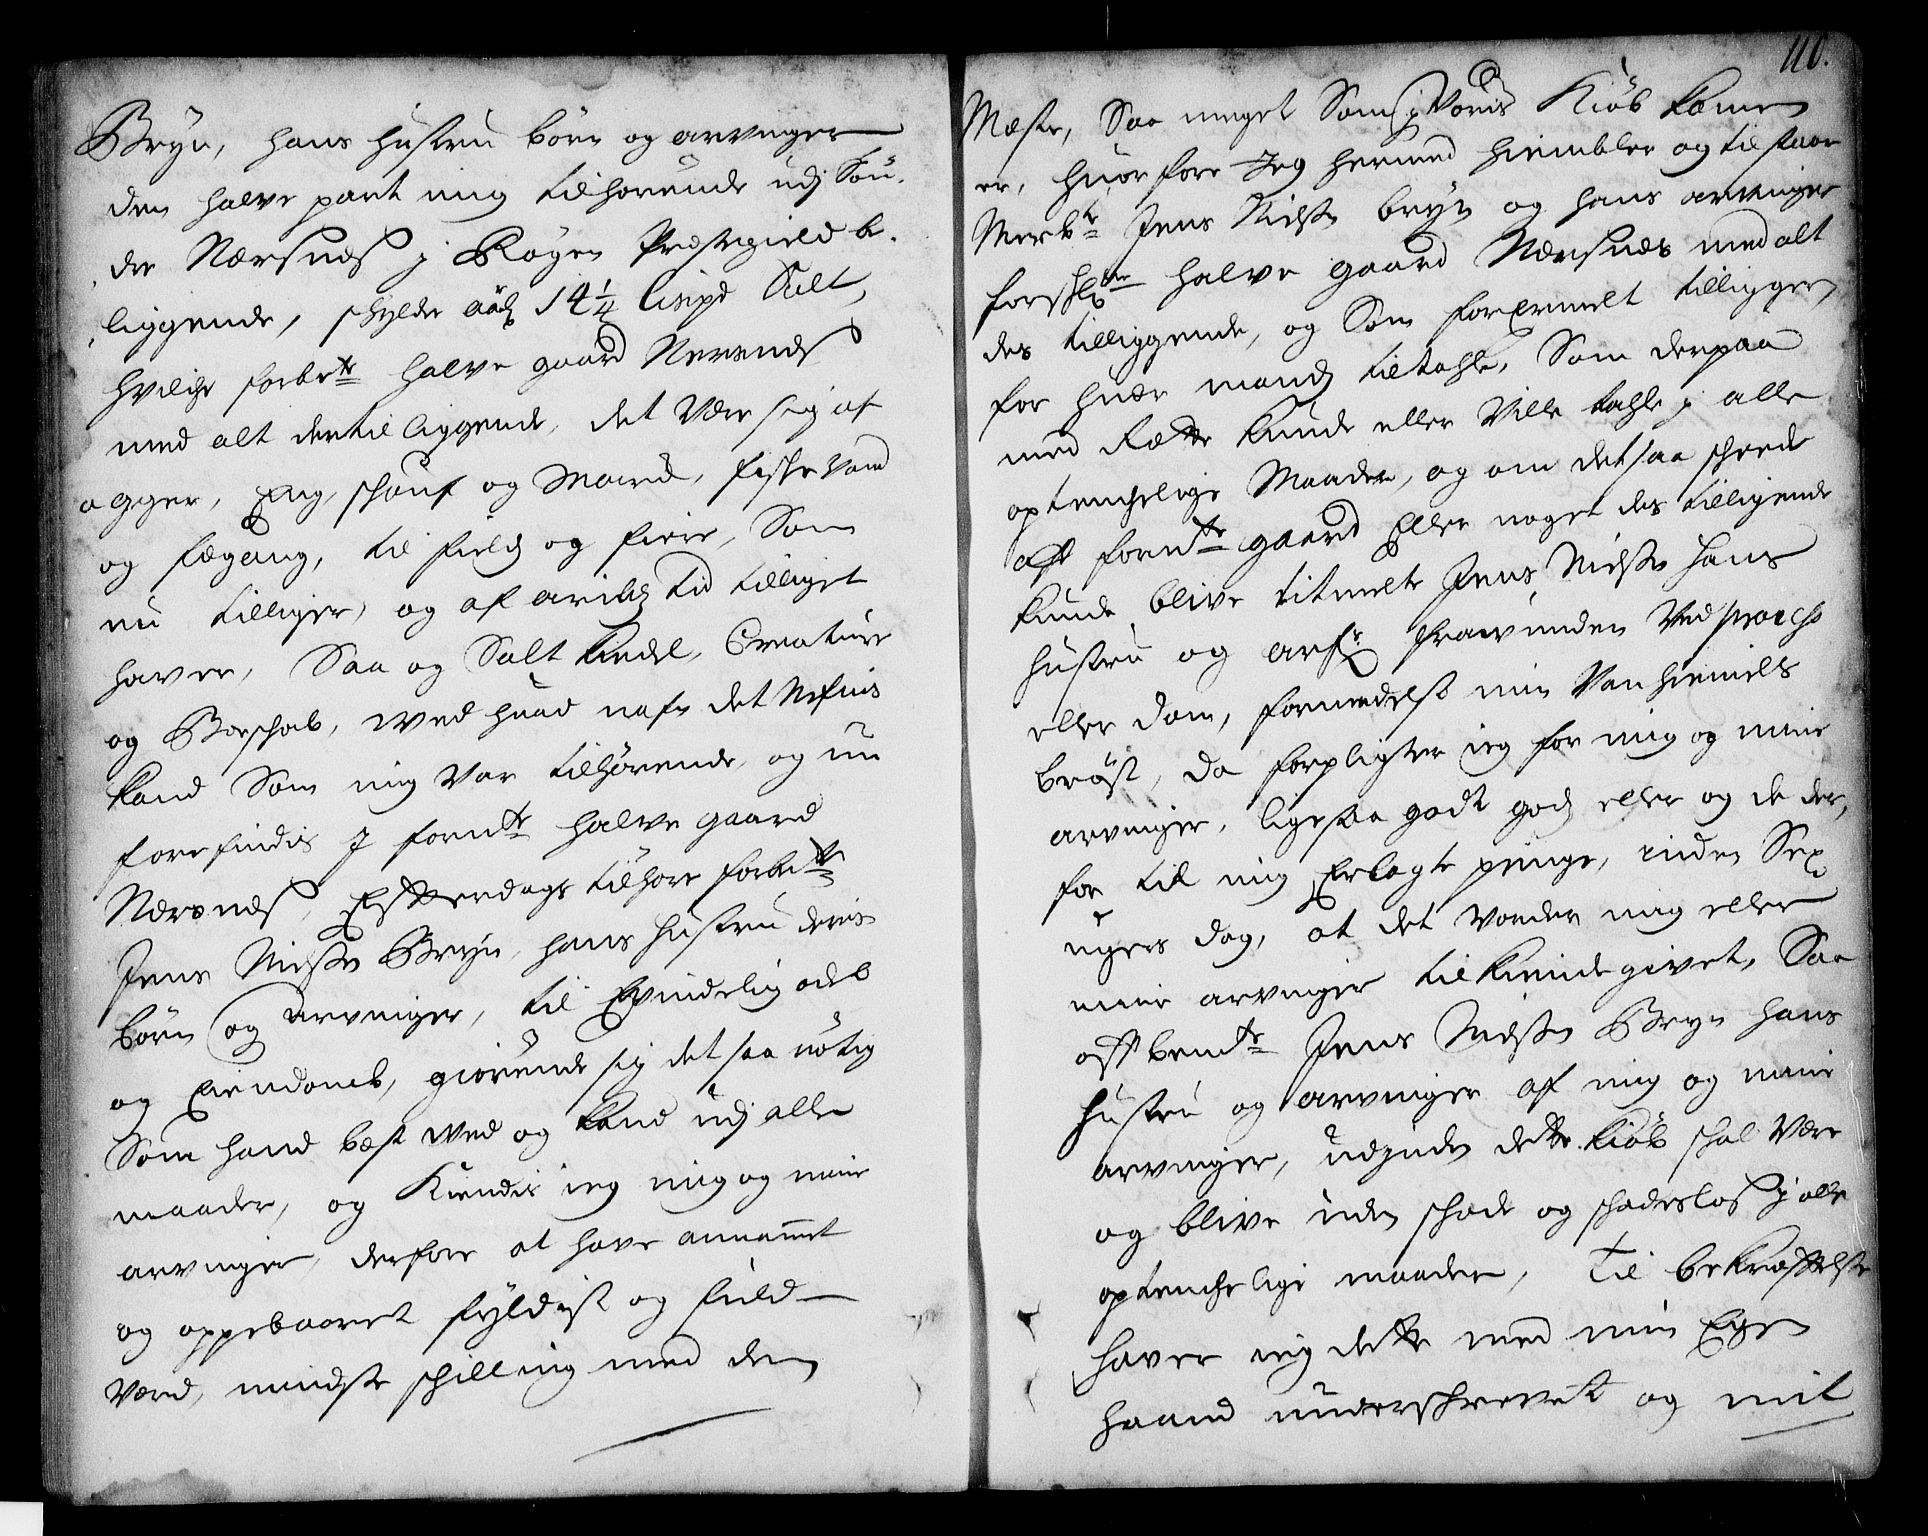 Bryn, hans hustru børn og arvinger
den halve part mig tilhörende udj Søn¬
dre Nærsnes j Røgen Præstegield be¬
liggende, schylder aarl 14 1/4 lispd Salt,
hvilche forbete halve gaard Nersnes
med alt dertil liggende, det være sig af
agger, Eng, schouf og March, fischevand
og fægang, til field og fiære, Som
nu tilliger, og af arilds tid tilliget
haver, Saa og Salt kiedel, Creature
og Boeschab, wed huad nafn det Nefnis
kand Som mig var tilhørende, og nu
forefindis J fornte halve gaard
Nersnes, Effterdags tilhøre forbete
Jens Nielsen Bryn, hans hustru deris
børn og arvinger, til Evindelig odel
og Eiendomb, giørende sig det saa nötig
Som hand bæst wed og kand udj alle
maader, og Kiendis ieg mig og mine
arvinger, derfore at have annammet
og oppebaaret fyldist og fuld
værd, mindste schilling med den
110.
Mæste, Saa meget Som j Voris Kiøb kommen
er, huorfore Jeg hermed hiembler og tilstaar
Merbte Jens Nielsen bryn og hans arvinger
forschr halve gaard Nersnes med alt
des tilliggende, og Som forermelt tilligger,
for huer mands tiltahle, Som derpaa
med Rætte kunde eller ville tahle j alle
optenchelige Maader, og om det saa scheede
aff fornte gaard Eller noget des tilligende
kunde blive titmelte Jens Nielsen hans
hustru og arfr frawunden ved process
eller dom, formedelst min Vanhiemels
brøst, da forpligter ieg for mig og mine
arvinger, ligesaa godt gods eller og de der¬
for til mig Erlagte penge, inden Sex
ugers dag, at det vorder mig eller
mine arvinger tilkiende givet, Saa
offtbemte Jens Nielsen Bryn hans
hustru og arvinger af mig og mine
arvinger, udjnden dette kiøb schal være
og blive uden schade og schadesløs j alle
optenchelige maader, Til bekræfftelse
haver ieg dette med min Egen
haand underschrevet og mit